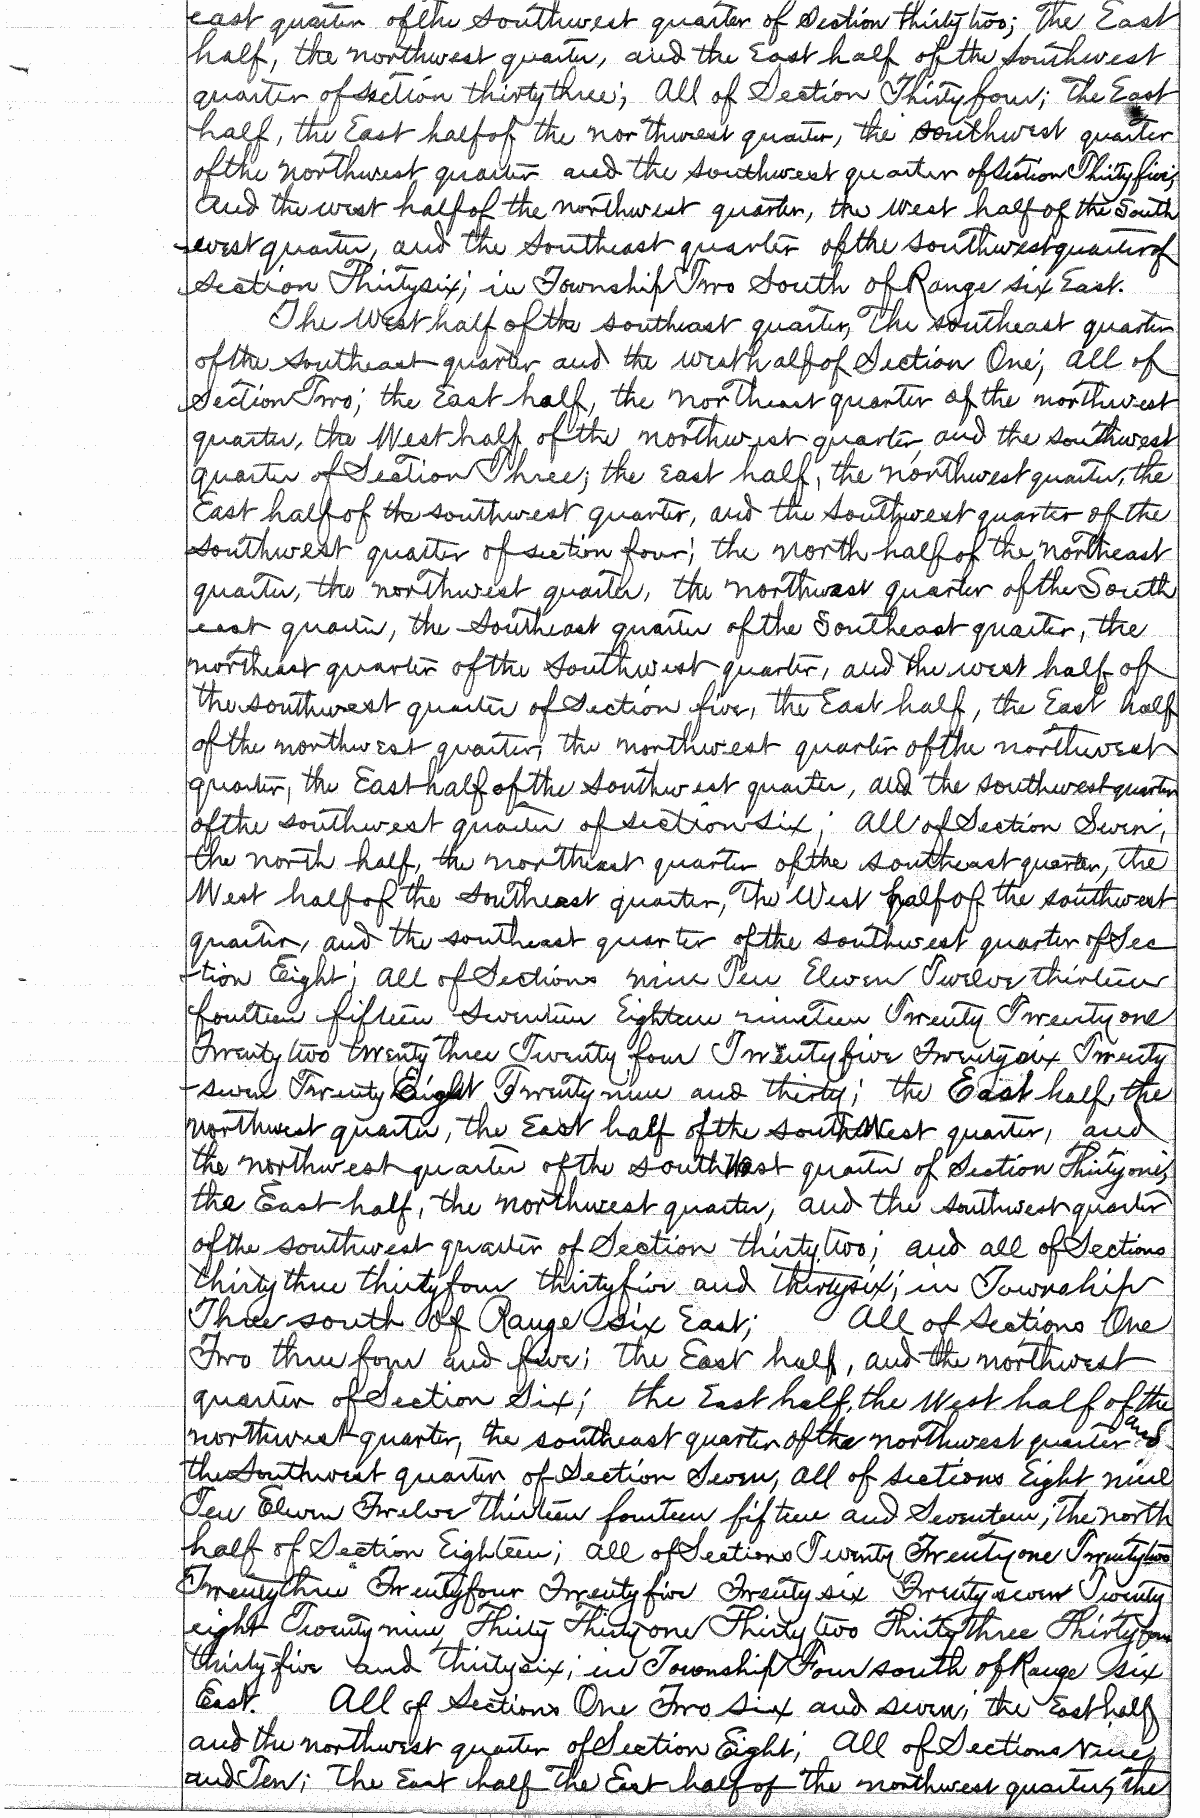 east quarter of the southwest quarter of Section thirty two; the East
half, the northwest quarter, and the East half of the southwest
quarter of section thirty three; All of Section Thirty four; the East
half, the East half of the northwest quarter, the southwest quarter
of the northwest quarter and the southwest quarter of section Thirty five;
and the west half of the northwest quarter, the west half of the South
-west quarter, and the southeast quarter of the southwest quarter of
section Thirty six; in Township Two South of Range six East.
The West half of the southeast quarter, The southeast quarter
of the southeast quarter and the west half of Section One; all of
Section Two; the East half, the northeast quarter of the northwest
quarter, the West half of the northwest quarter, and the southwest
quarter of Section Three; the East half, the northwest quarter, the
East half of the southwest quarter, and the southwest quarter of the
southwest quarter of section four; the north half of the northeast
quarter, the northwest quarter, the northwest quarter of the South
east quarter, the southeast quarter of the Southeast quarter, the
northeast quarter of the southwest quarter, and the west half of
the southwest quarter of Section five, the East half, the East half
of the northwest quarter, the northwest quarter of the northwest
quarter, the East half of the southwest quarter, and the southwest quarter
of the southwest quarter of section six; all of Section Seven;
the north half, the northeast quarter of the southeast quarter, the
West half of the southeast quarter, the West half of the southwest
quarter, and the southeast quarter of the southwest quarter of Sec
-tion Eight; all of Sections nine Ten Eleven Twelve thirteen
fourteen fifteen seventeen Eighteen nineteen Twenty Twenty one
Twenty two twenty three Twenty four Twenty five Twenty six Twenty
-seven Twenty Eight Twenty nine and thirty; the East half, the
northwest quarter, the East half of the southWest quarter, and
the northwest quarter of the southWest quarter of Section Thirty one;
the East half, the northwest quarter, and the southwest quarter
of the southwest quarter of Section thirty two; and all of Sections
thirty three thirty four thirty five and thirty six; in Township
Three south of Range six East; All of Sections One
Two three four and five; the East half, and the northwest
quarter of Section Six; the East half, the West half of the
northwest quarter, the southeast quarter of the northwest quarter and
the Southwest quarter of Section Seven, all of sections Eight nine
Ten Eleven Twelve thirteen fourteen fifteen and Seventeen, the north
half of Section Eighteen; all of Sections Twenty Twenty one Twenty two
Twenty three Twenty four Twenty five Twenty six Twenty seven Twenty
eight Twenty nine Thirty Thirty one Thirty two Thirty three Thirty four
thirty five and thirty six; in Township Four south of Range six
East. All of Sections One Two six and seven; the East half
and the northwest quarter of Section Eight; All of Sections Nine,
and Ten; the East half the East half of the northwest quarter, the